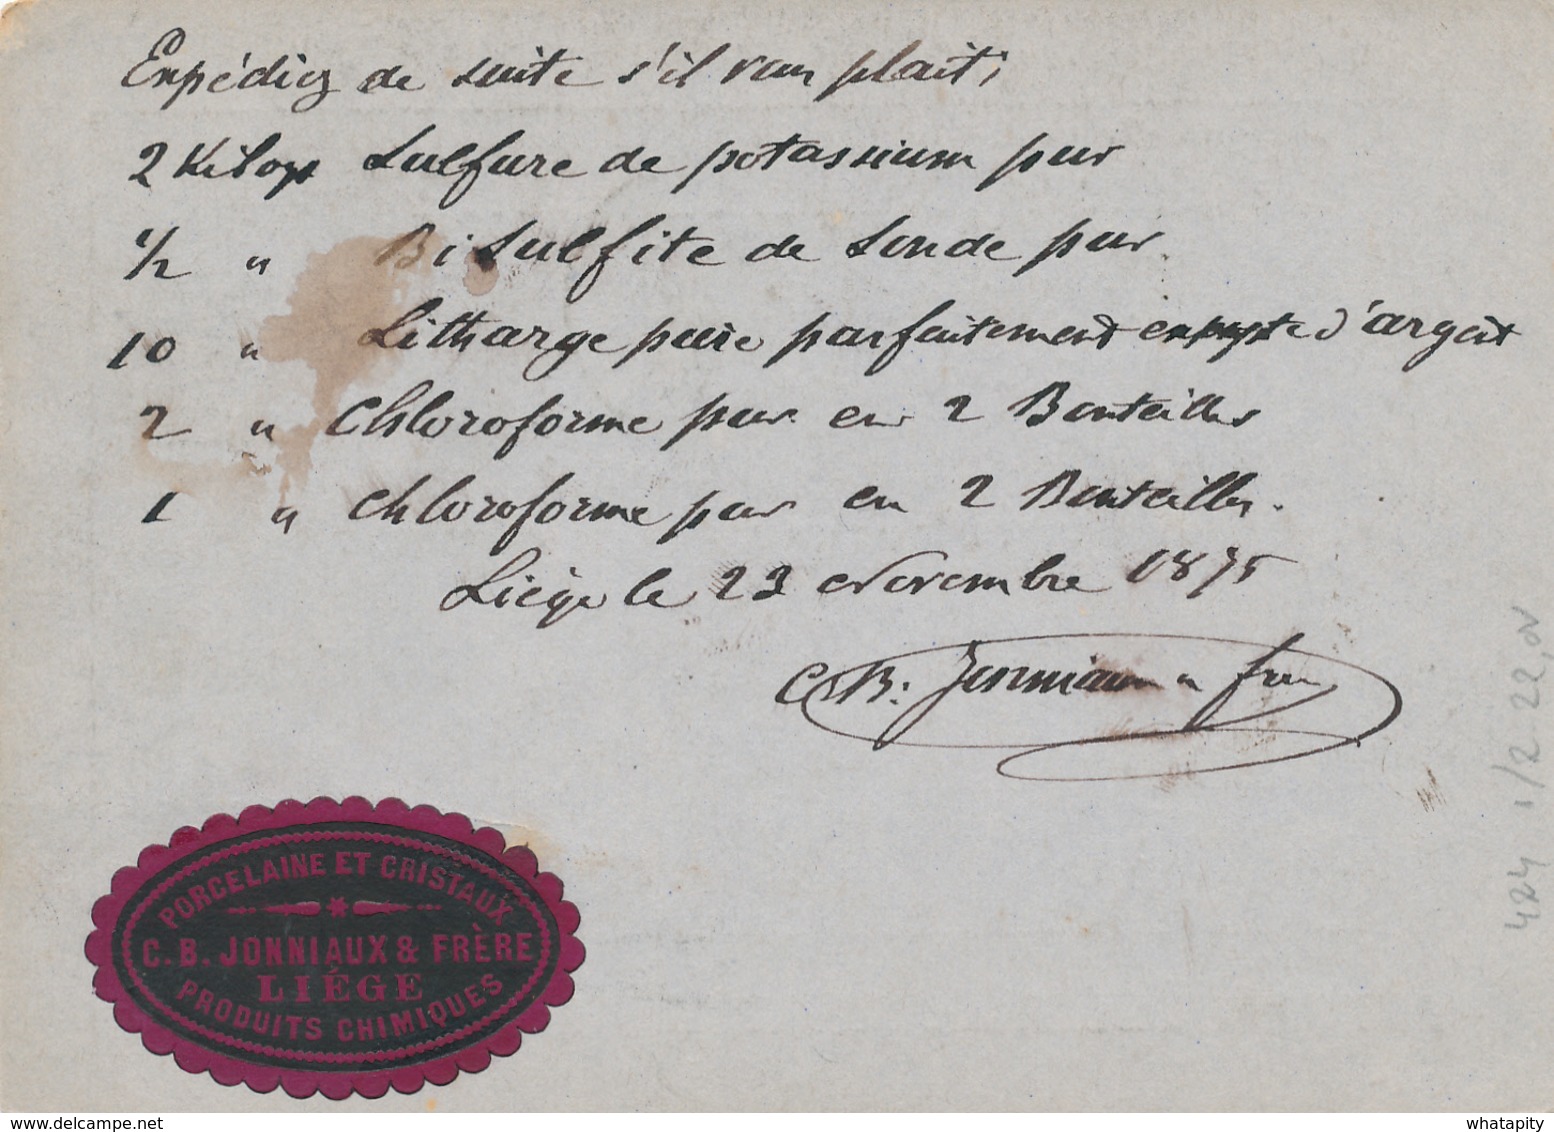 Expédiez de suite s'il vous plait,
2 Kilogs Sulfure de potassium pur
1/2 " Bi Sulfite de Soude pur
10 " Litharge pure parfaitement exempte d'argent
2 " Chloroforme pur en 2 Bouteilles
1 " Chloroforme pur en 2 Bouteilles.
Liège le 23 Novembre 1875
C. B. Jonniaux & frère
PORCELAINE ET CRISTAUX
C. B. JONNIAUX & FRÈRE
LIÉGE
PRODUITS CHIMIQUES
424 1/2 22,00
whatapity